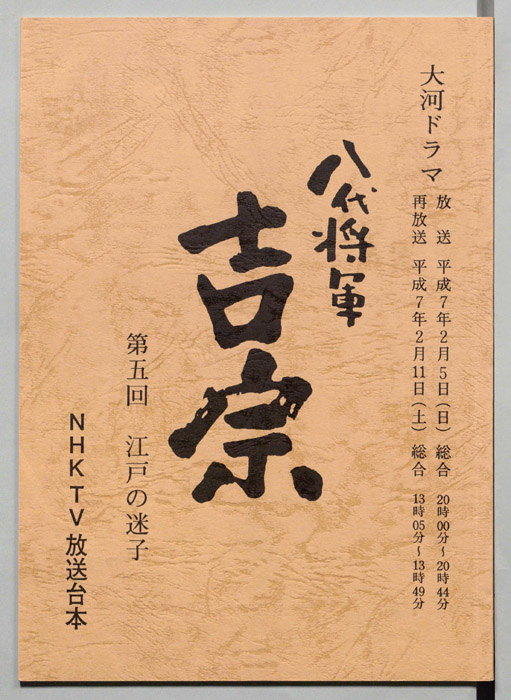 大河ドラマ
放送 平成7年2月5日(日) 総合 20時00分~20時44分
再放送 平成7年2月11日(土) 総合 13時05分~13時49分
八代将軍
吉宗
第五回 江戸の迷子
NHK TV 放送台本